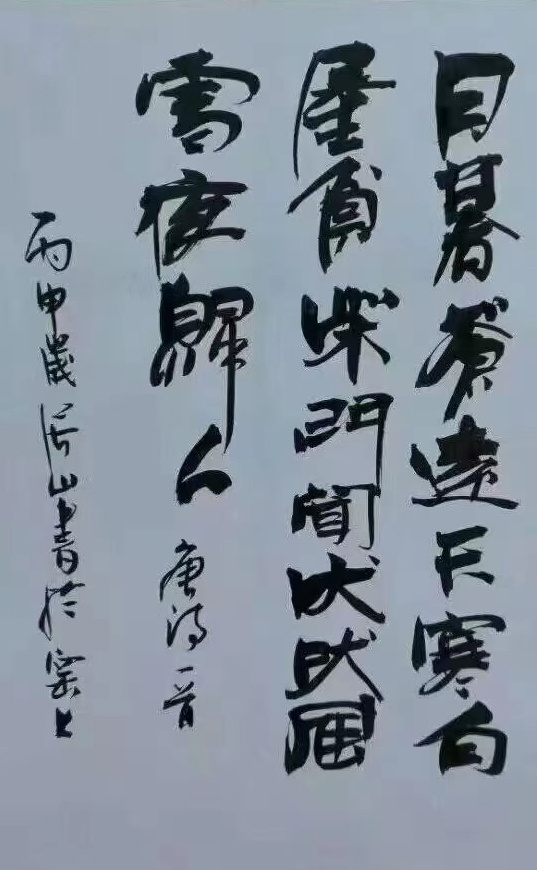 日暮蒼遠天寒白
屋貧柴門聞犬吠風
雪夜歸人 唐詩一首
丙申歲 山書於 上